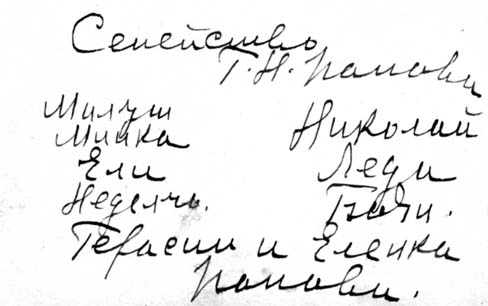 Семейство
Т. Н. Попови
Милуш
Минка
Ели
Неделчо.
Николай
Леди
Герасим и Еленка
Попови.